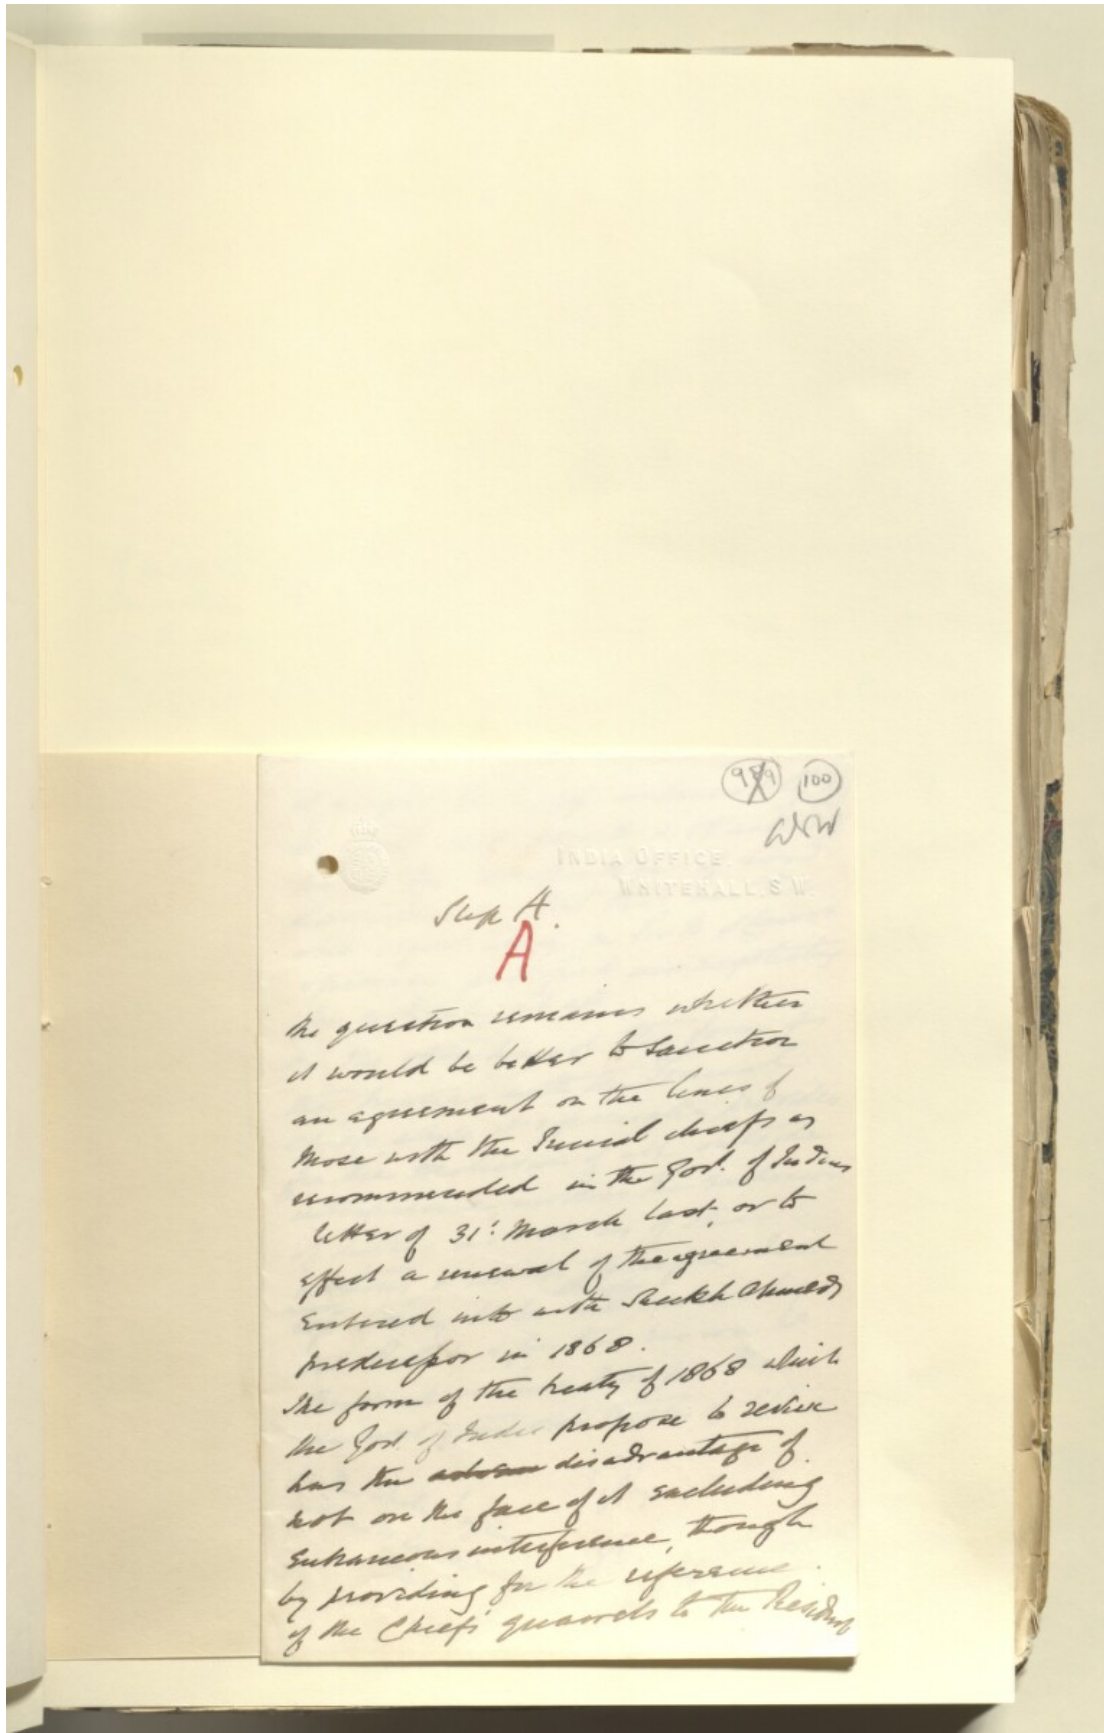 99
100
WW
INDIA OFFICE,
WHITEHALL, S.W.
Slip A.
A
The question remains whether
it would be better to sanction
an agreement on the lines of
those with the Trucial chiefs as
recommended in the Govt. of India's
letter of 31st March last, or to
effect a renewal of the agreement
entered into with Sheikh Ahmed's
predecessor in 1868.
The form of the treaty of 1868 which
the Govt. of India propose to revive
has the disadvantage of
not on the face of it excluding
extraneous interference, though
by providing for the reference
of the Chief's quarrels to the Resident